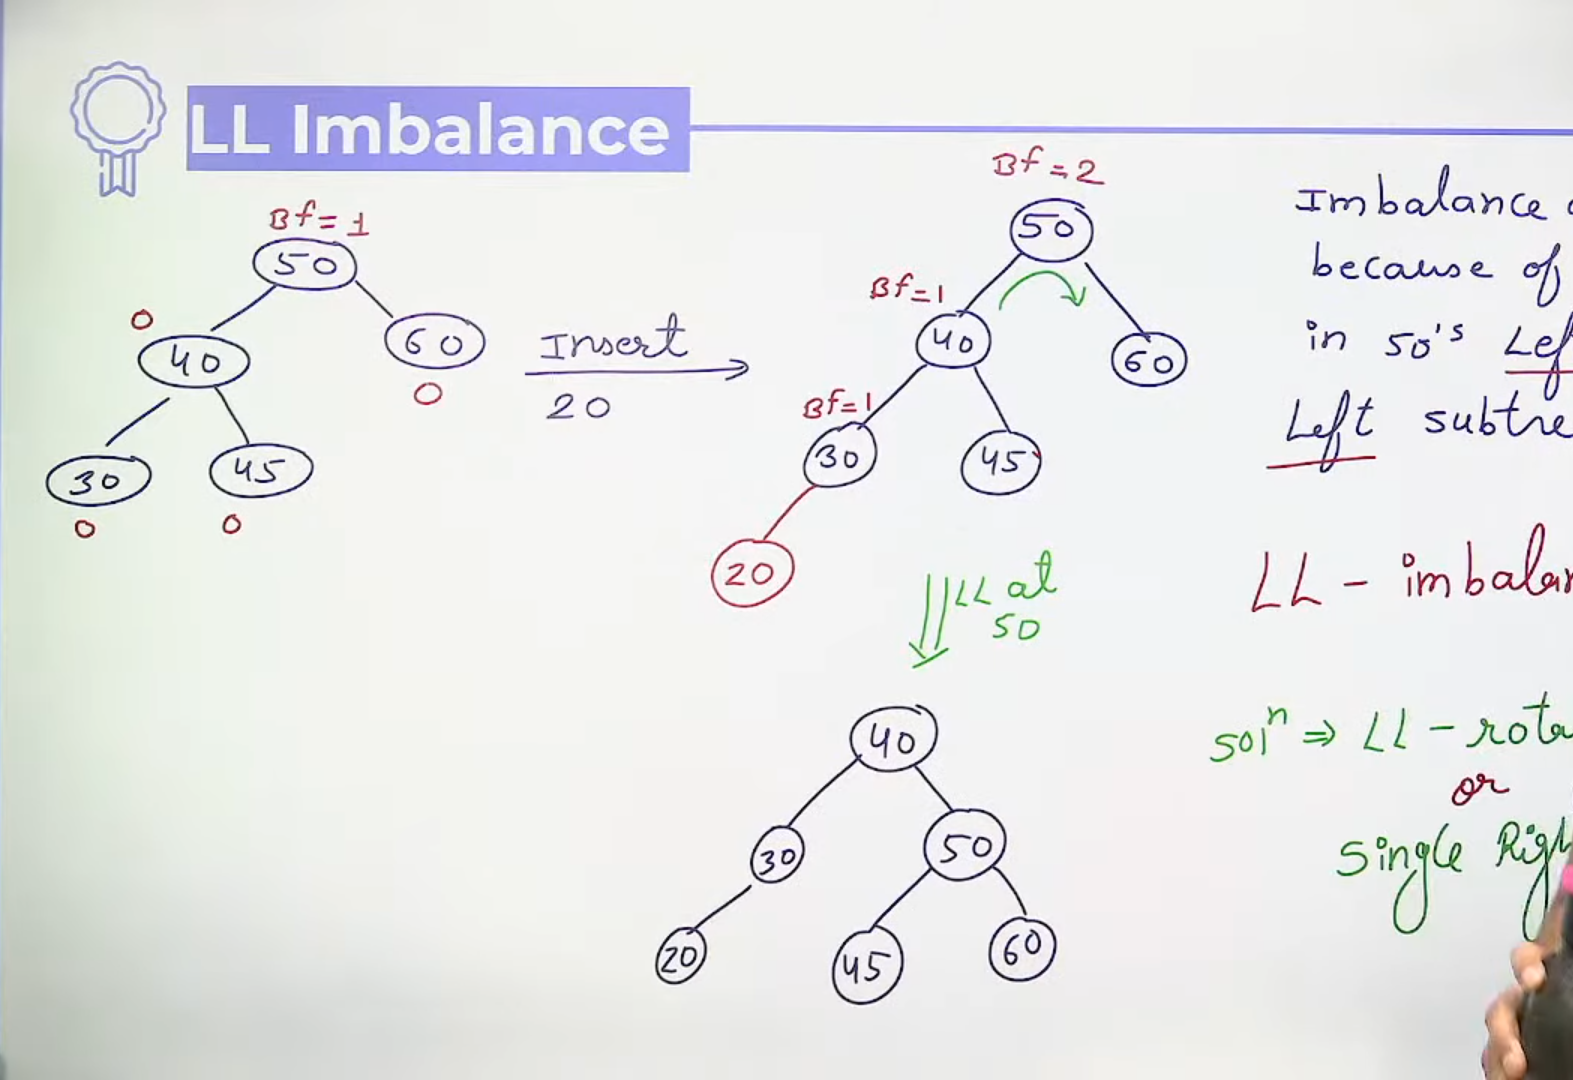 LL Imbalance
Bf=1
50
0
40
60
0
30
45
0
0
Insert
20
Bf=2
50
Bf=1
40
60
Bf=1
30
45
20
LL at
50
40
30
50
20
45
60
Imbalance
because of
in 50's
Left
LL -
solⁿ ⇒ LL -
or
Single